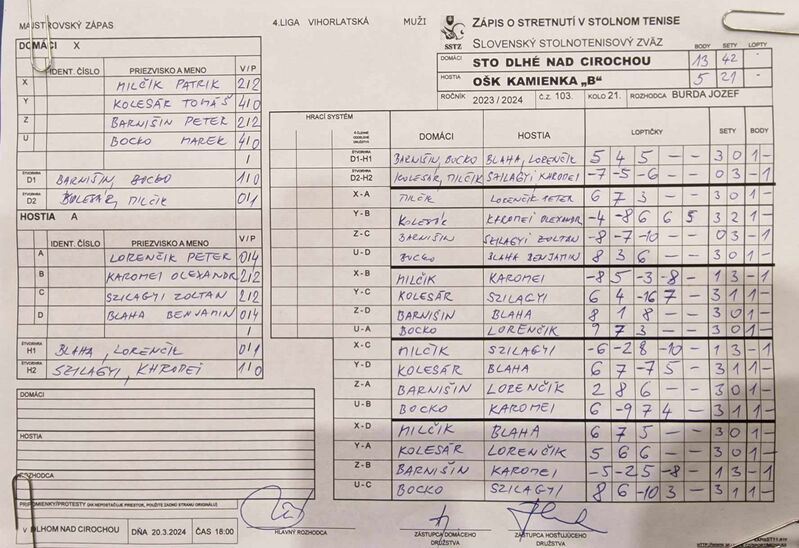 MAJSTROVSKÝ ZÁPAS 4.LIGA VIHORLATSKÁ MUŽI ZÁPIS O STRETNUTÍ V STOLNOM TENISE
SSTZ SLOVENSKÝ STOLNOTENISOVÝ ZVÄZ
BODY SETY LOPTY
DOMÁCI STO DLHÉ NAD CIROCHOU 13 42
HOSTIA OŠK KAMIENKA „B" 5 21
ROČNÍK 2023 / 2024 č.z. 103. KOLO 21. ROZHODCA BURDA JOZEF
DOMÁCI X
IDENT. ČÍSLO PRIEZVISKO A MENO V/P
X MILČÍK PATRIK 2/2
Y KOLESÁR TOMÁŠ 4/0
Z BARNIŠIN PETER 2/2
U BOCKO MAREK 4/0
/
ŠTVORHRA D1 BARNIŠIN, BOCKO 1/0
ŠTVORHRA D2 KOLESÁR, MILČÍK 0/1
HOSTIA A
IDENT. ČÍSLO PRIEZVISKO A MENO V/P
A LORENČÍK PETER 0/4
B KAROMEI OLEXANDR 2/2
C SZILAGYI ZOLTAN 2/2
D BLAHA BENJAMIN 0/4
/
ŠTVORHRA H1 BLAHA, LORENČÍK 0/1
ŠTVORHRA H2 SZILAGYI, KHROMEI 1/0
DOMÁCI
HOSTIA
ROZHODCA
PRIPOMIENKY/PROTESTY (AK NEPOSTAČUJE PRIESTOR, POUŽITE ZADNÚ STRANU ORIGINÁLU)
HRACÍ SYSTÉM DOMÁCI HOSTIA LOPTIČKY SETY BODY
ŠTVORHRA D1-H1 BARNIŠIN, BOCKO BLAHA, LORENČÍK 5 4 5 – – 3 0 1 –
ŠTVORHRA D2-H2 KOLESÁR, MILČÍK SZILAGYI KAROMEI -7 -5 -6 – – 0 3 – 1
X-A MILČÍK LORENČÍK PETER 6 7 3 – – 3 0 1 –
Y-B KOLESÁR KAROMEI OLEXANDR -4 -8 6 6 5 3 2 1 –
Z-C BARNIŠIN SZILAGYI ZOLTAN -8 -7 -10 – – 0 3 – 1
U-D BOCKO BLAHA BENJAMIN 8 3 6 – – 3 0 1 –
X-B MILČÍK KAROMEI -8 5 -3 -8 – 1 3 – 1
Y-C KOLESÁR SZILAGYI 6 4 -16 7 – 3 1 1 –
Z-D BARNIŠIN BLAHA 8 1 8 – – 3 0 1 –
U-A BOCKO LORENČÍK 9 7 3 – – 3 0 1 –
X-C MILČÍK SZILAGYI -6 -2 8 -10 – 1 3 – 1
Y-D KOLESÁR BLAHA 6 7 -7 5 – 3 1 1 –
Z-A BARNIŠIN LORENČÍK 2 8 6 – – 3 0 1 –
U-B BOCKO KAROMEI 6 -9 7 4 – 3 1 1 –
X-D MILČÍK BLAHA 6 7 5 – – 3 0 1 –
Y-A KOLESÁR LORENČÍK 5 6 6 – – 3 0 1 –
Z-B BARNIŠIN KAROMEI -5 -2 5 -8 – 1 3 – 1
U-C BOCKO SZILAGYI 8 6 -10 3 – 3 1 1 –
V DLHOM NAD CIROCHOU DŇA 20.3.2024 ČAS 18:00
HLAVNÝ ROZHODCA
ZÁSTUPCA DOMÁCEHO DRUŽSTVA
ZÁSTUPCA HOSŤUJÚCEHO DRUŽSTVA